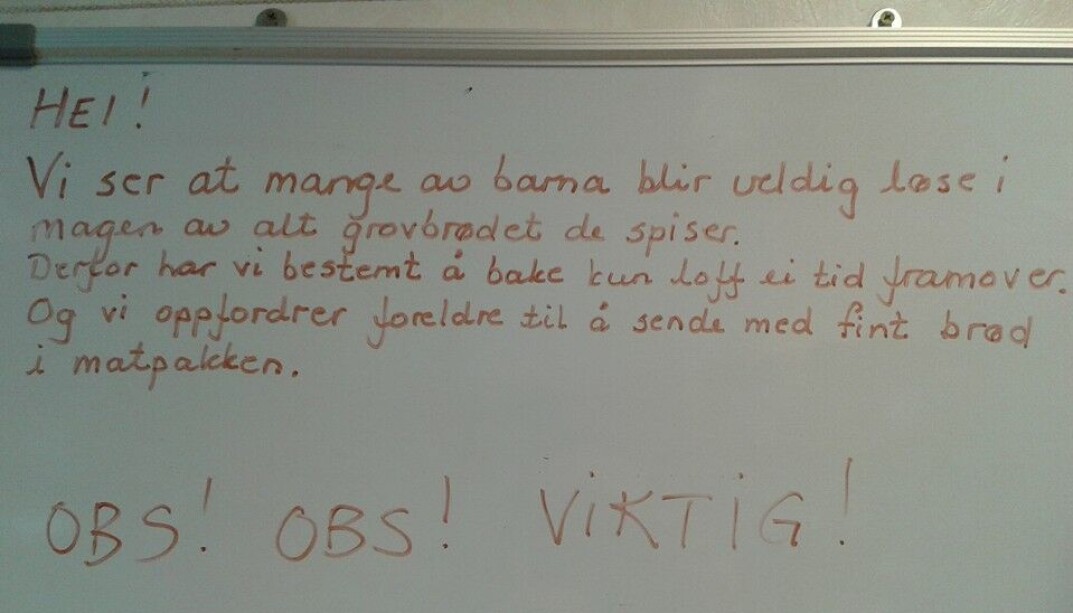 HEI!
Vi ser at mange av barna blir veldig løse i
magen av alt grovbrødet de spiser.
Derfor har vi bestemt å bake kun loff ei tid framover.
Og vi oppfordrer foreldre til å sende med fint brød
i matpakken.
OBS! OBS! VIKTIG!